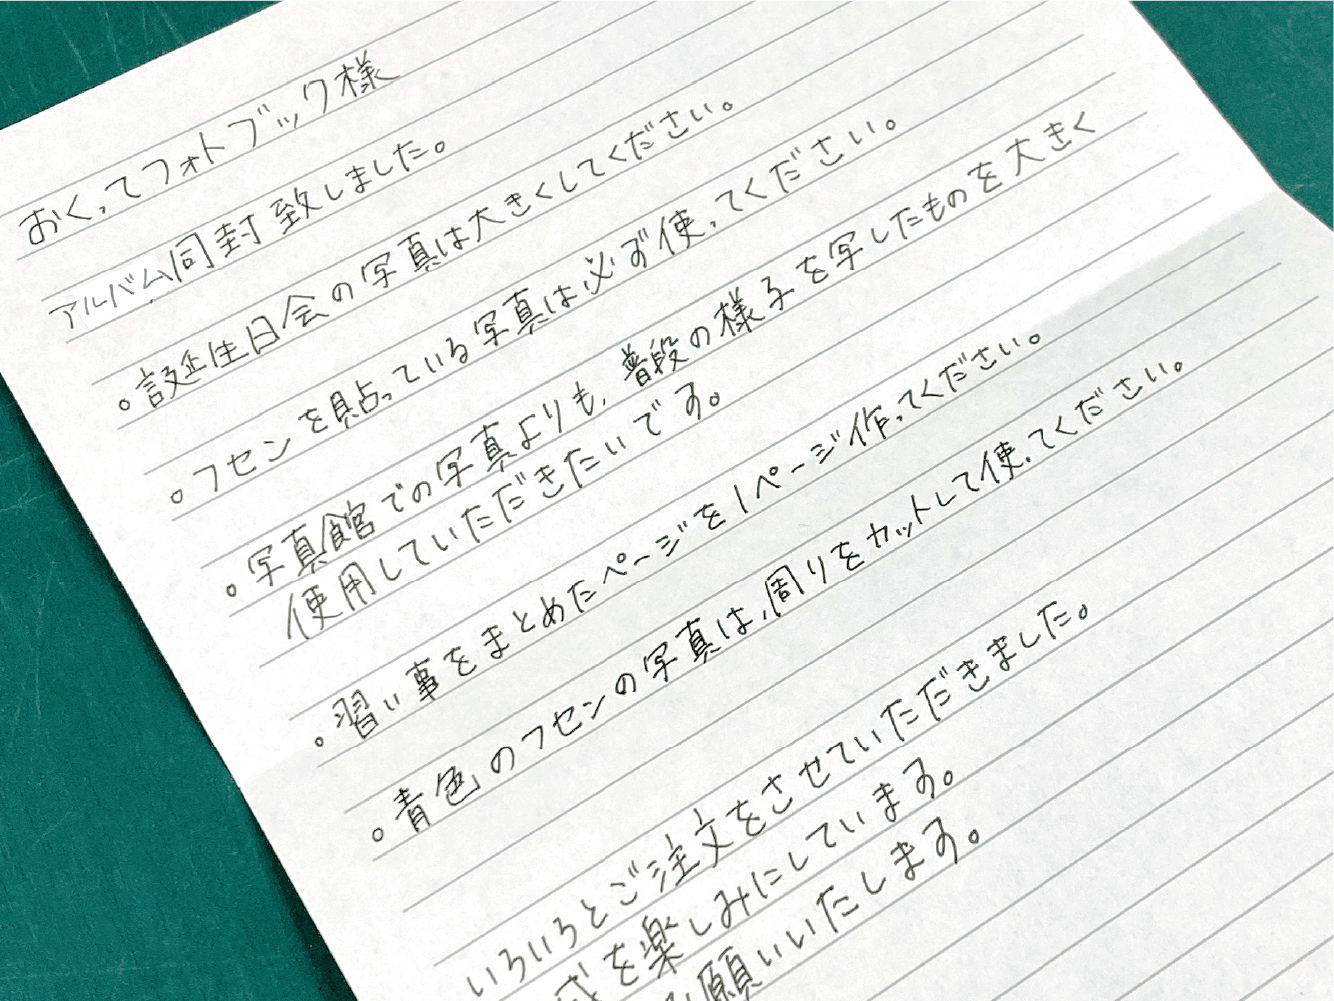 おくってフォトブック様
アルバム同封致しました。
。誕生日会の写真は大きくしてください。
。フセンを貼っている写真は必ず使ってください。
。写真館での写真よりも、普段の様子を写したものを大きく
使用していただきたいです。
。習い事をまとめたページを1ページ作ってください。
。青色のフセンの写真は、周りをカットして使ってください。
いろいろとご注文をさせていただきました。
を楽しみにしています。
願いいたします。